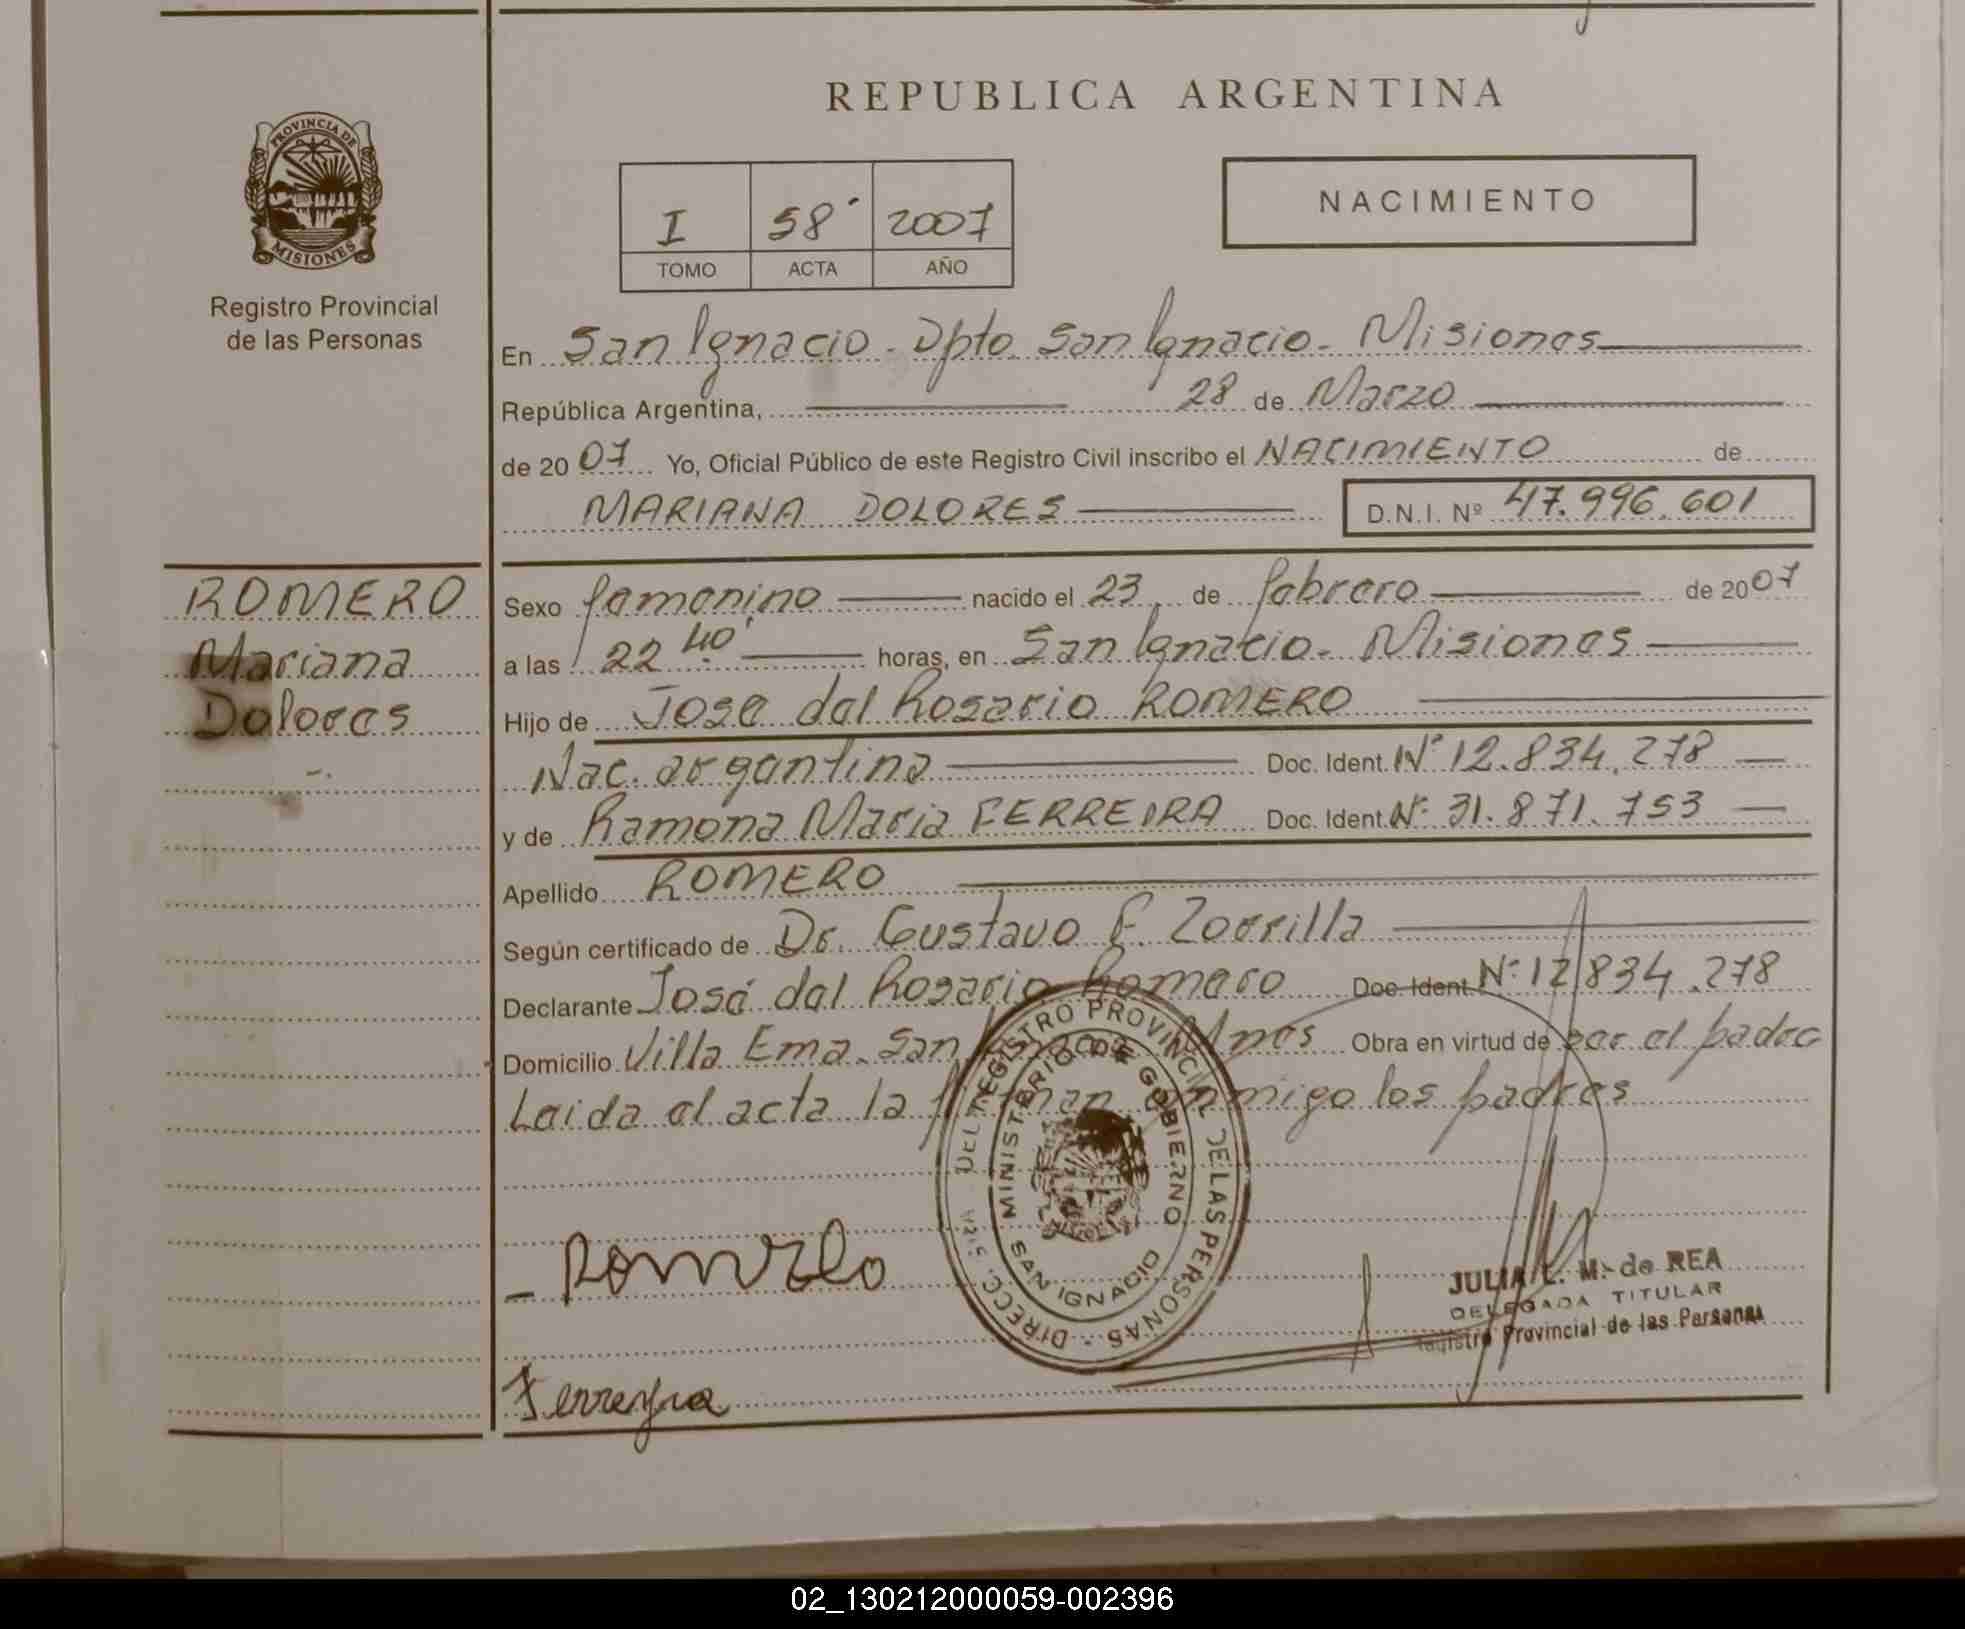 REPUBLICA ARGENTINA
PROVINCIA DE
MISIONES
Registro Provincial
de las Personas
I 58 2007
TOMO ACTA AÑO
NACIMIENTO
En San Ignacio - Dpto San Ignacio - Misiones
República Argentina, 28 de Marzo
de 2007 Yo, Oficial Público de este Registro Civil inscribo el NACIMIENTO de
MARIANA DOLORES D.N.I. Nº 47.996.601
ROMERO
Mariana
Dolores
Sexo femenino nacido el 23 de febrero de 2007
a las 22 40' horas, en San Ignacio - Misiones
Hijo de Jose del Rosario ROMERO
Nac. argentina Doc. Ident. Nº 12.834.278
y de Ramona Maria FERREIRA Doc. Ident. Nº 31.871.753
Apellido ROMERO
Según certificado de Dr. Gustavo E. Zorrilla
Declarante José del Rosario Romero Doc. Ident. Nº 12.834.278
Domicilio Villa Ema. San Ignacio Mnes Obra en virtud de ser el padre
Leida el acta la firman conmigo los padres
DIRECC. GRAL. DEL REGISTRO PROVINCIAL DE LAS PERSONAS
MINISTERIO DE GOBIERNO
SAN IGNACIO
Romero
JULIA L. M. de REA
DELEGADA TITULAR
Registro Provincial de las Personas
Ferreyra
02_130212000059-002396